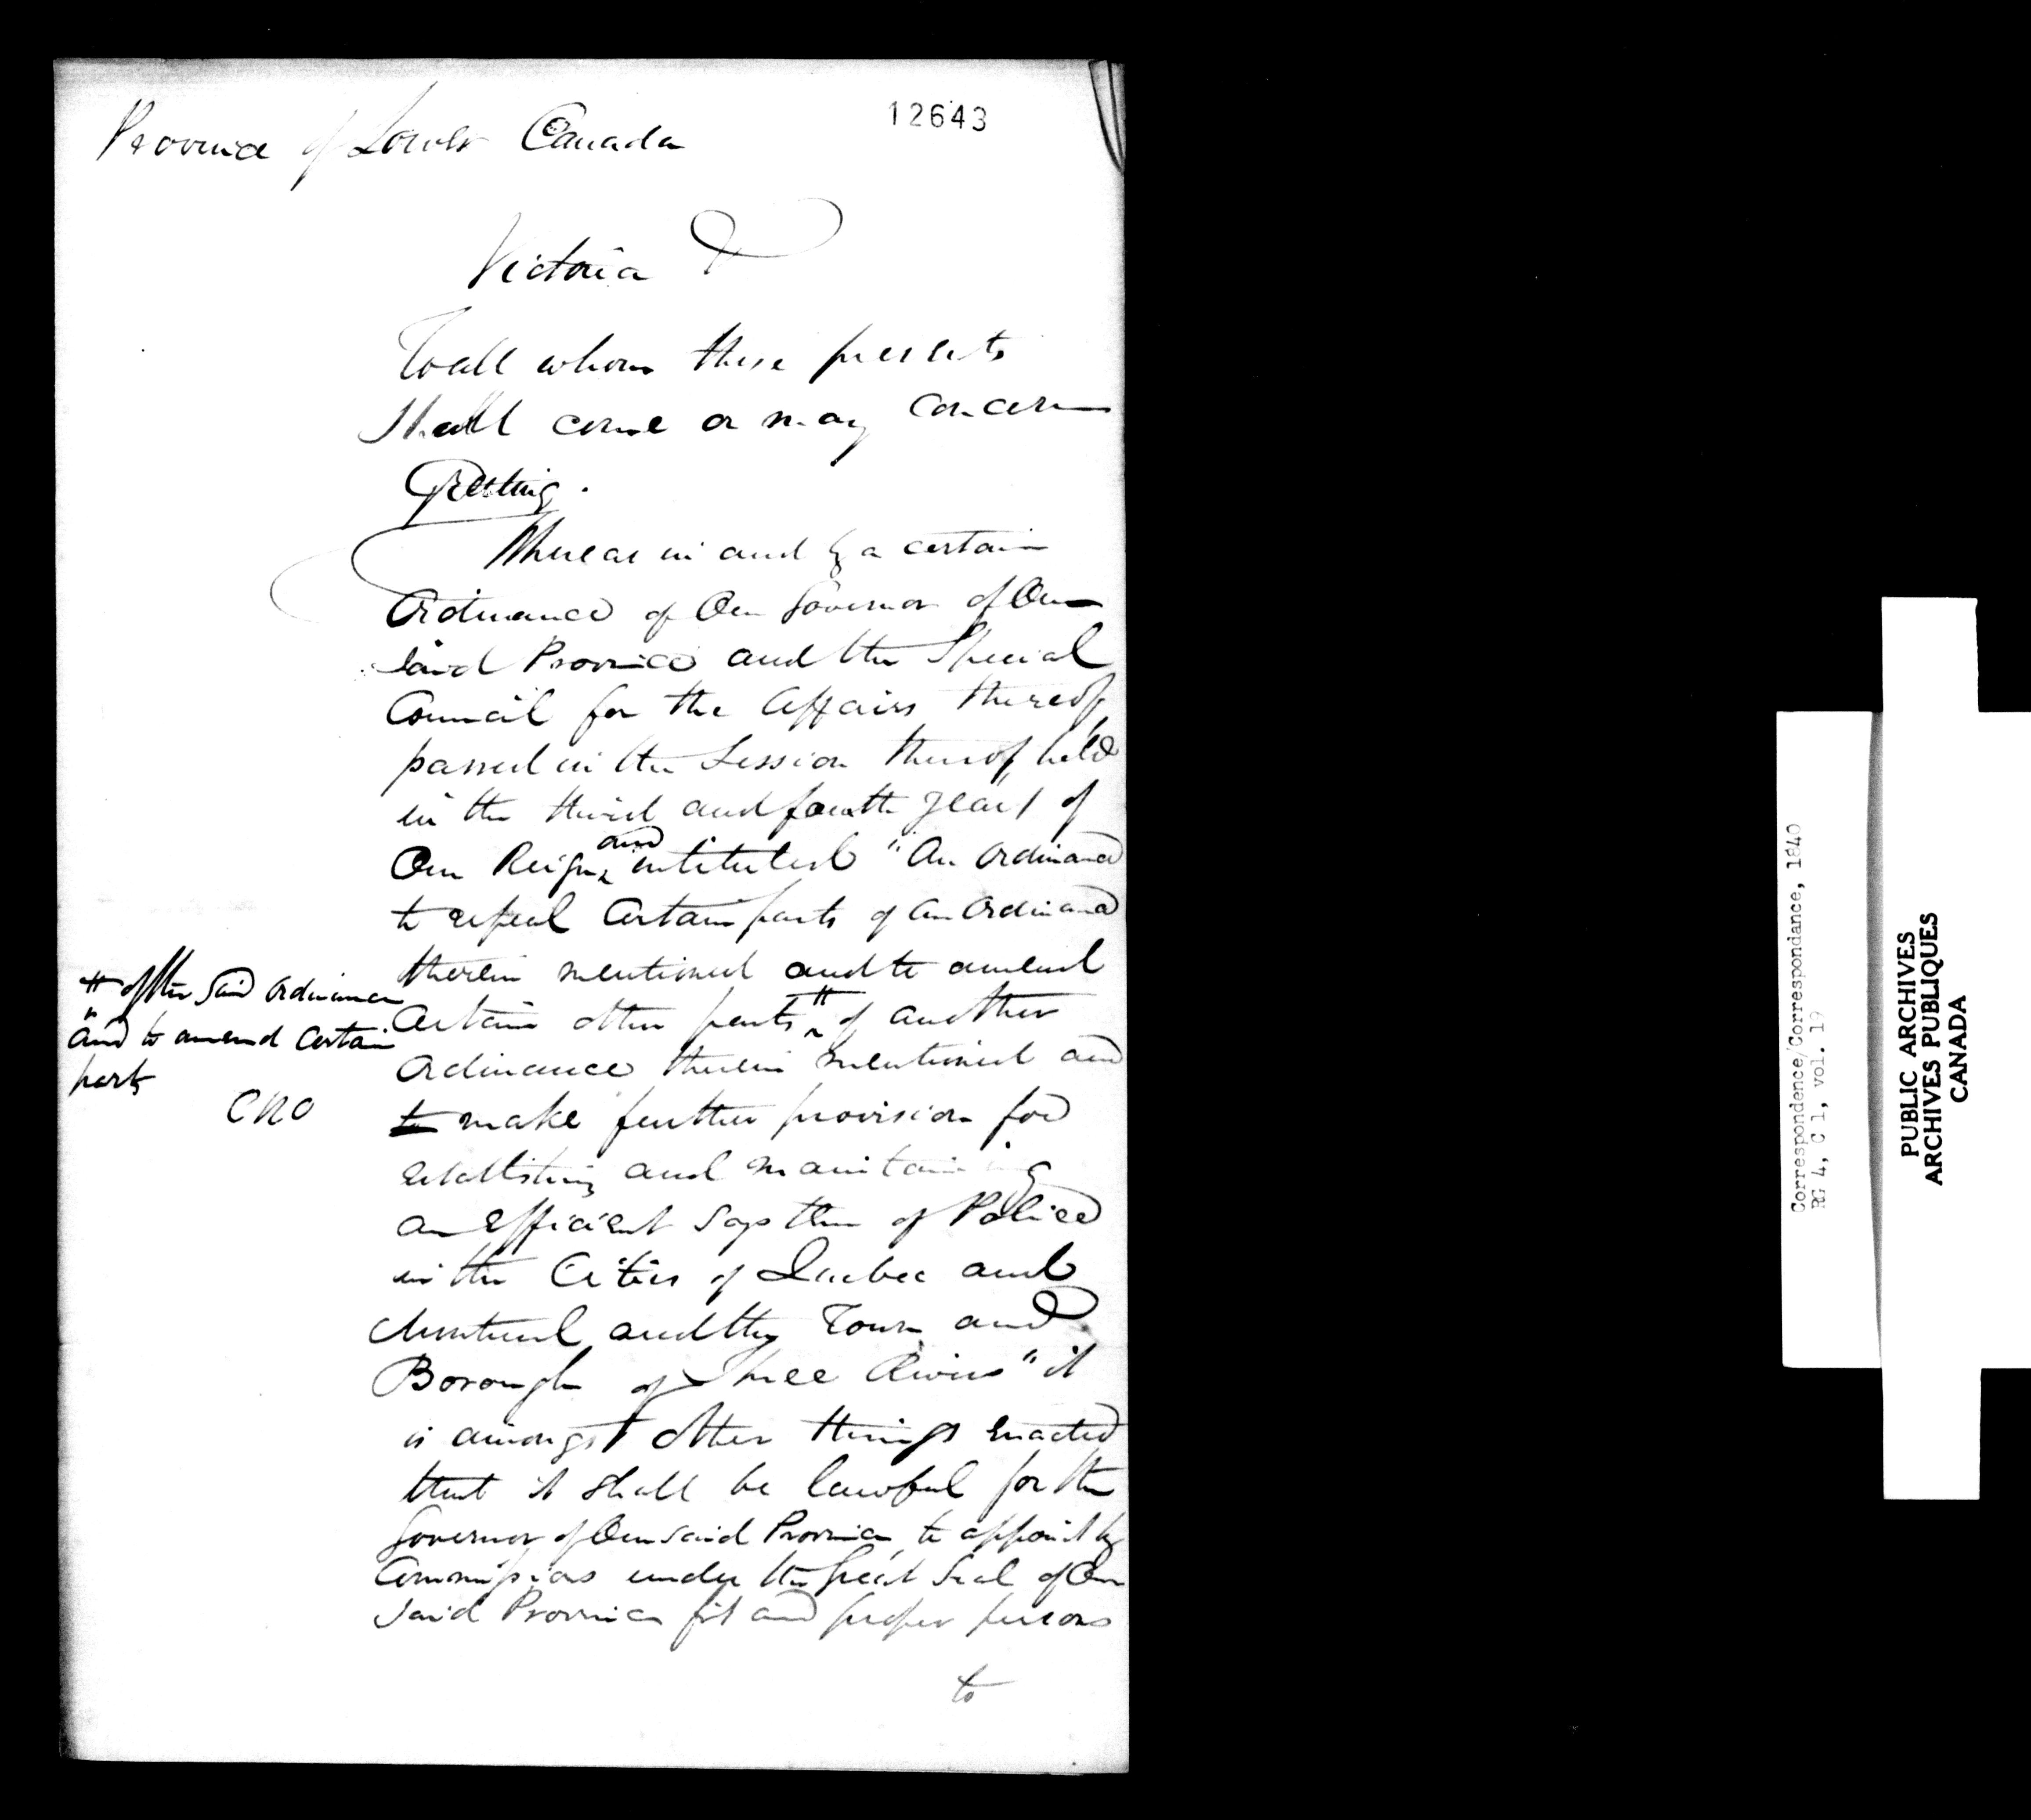 12643
Province of Lower Canada
Victoria &
To all whom these presents
Shall come or may Concern
Greeting.
Whereas in and by a certain
Ordinance of Our Governor of Our
said Province and the Special
Council for the Affairs thereof,
passed in the Session thereof, held
in the third and fourth years of
Our Reign and intituled "An Ordinance
to repeal Certain parts of an Ordinance
therein mentioned and to amend
Certain other parts # of another
Ordinance therein mentioned and
to make further provision for
establishing and maintaining
an efficient System of Police
in the Cities of Quebec and
Montreal and the Town and
Borough of Three Rivers" it
is amongst other things enacted
that it shall be lawful for the
Governor of Our said Province, to appoint by
Commissions under the Great Seal of Our
said Province fit and proper persons
to
# of the said Ordinance
and to amend certain
parts
CRO
Correspondence/Correspondance, 1840
RG 4, C 1, vol. 19
PUBLIC ARCHIVES
ARCHIVES PUBLIQUES
CANADA